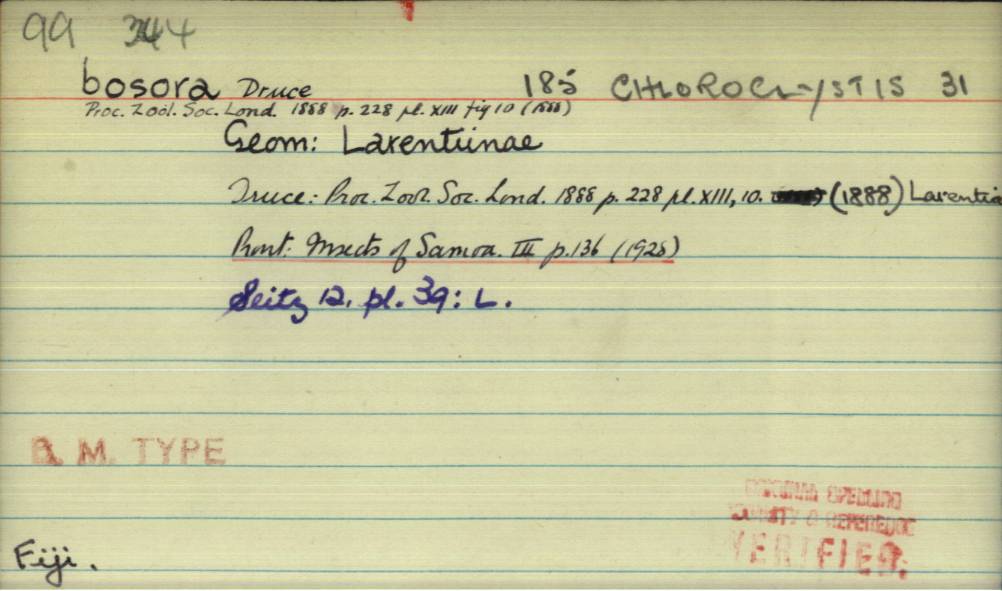 99 344
bosora Druce 185 CHLOROCLYSTIS 31
Proc. Zool. Soc. Lond. 1888 p. 228 pl. XIII fig 10 (1888)
Geom: Larentiinae
Druce: Proc. Zool. Soc. Lond. 1888 p. 228 pl. XIII, 10. (1888) Larentia
Prout: Insects of Samoa. III p. 136 (1928)
Seitz 12. pl. 39: L.
B. M. TYPE
ORIGINAL SPELLING
& REFERENCE
VERIFIED.
Fiji.